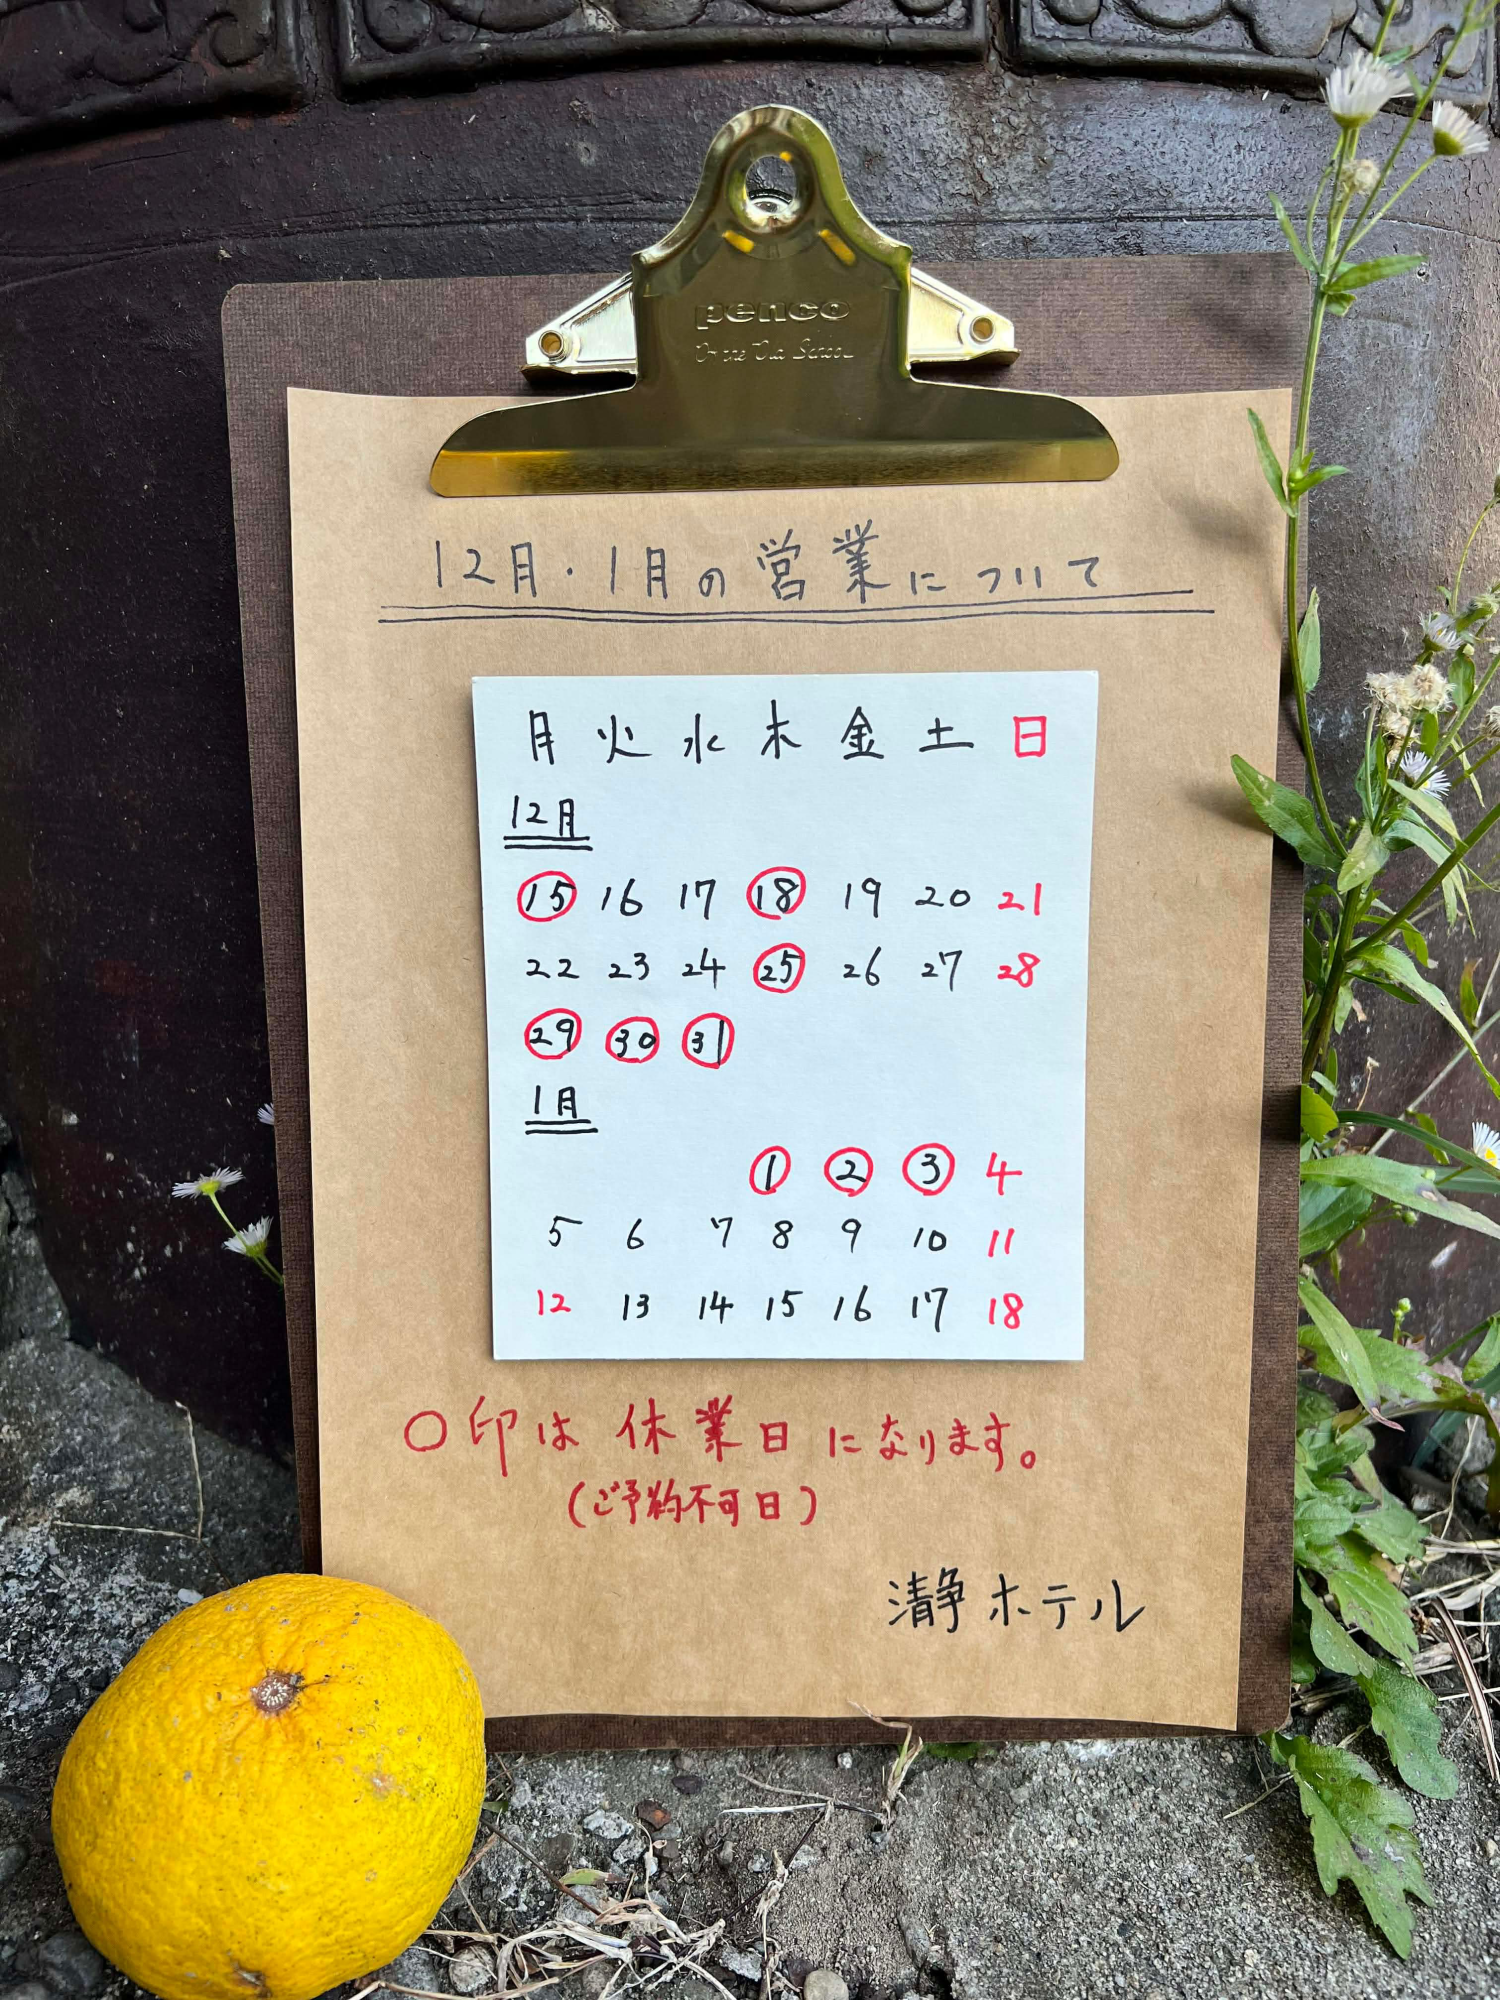 penco
On the Old School
12月・1月の営業について
月 火 水 木 金 土 日
12月
15 16 17 18 19 20 21
22 23 24 25 26 27 28
29 30 31
1月
1 2 3 4
5 6 7 8 9 10 11
12 13 14 15 16 17 18
〇印は 休業日になります。
(ご予約不可日)
清静ホテル